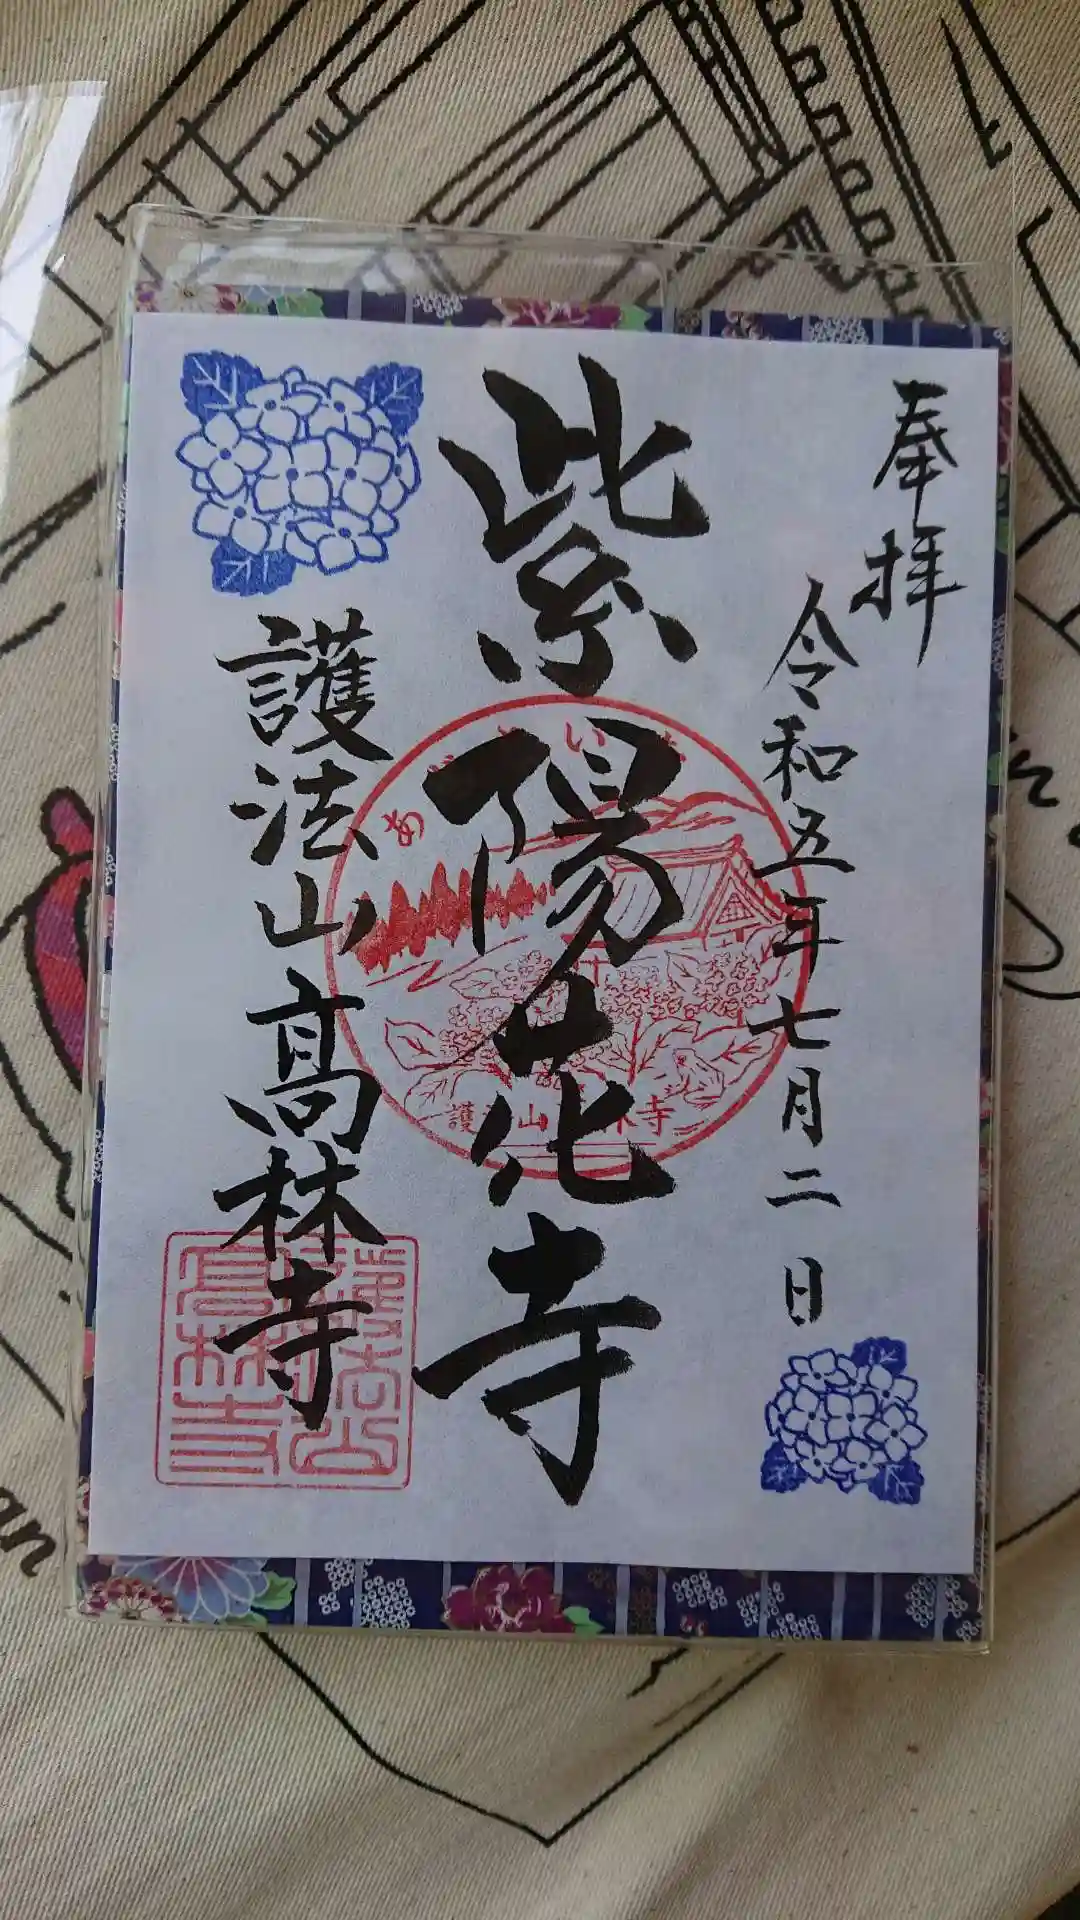 奉拝
令和五年七月二日
紫陽花寺
護法山高林寺
あじさい寺
護法山高林寺
護法山
高林寺